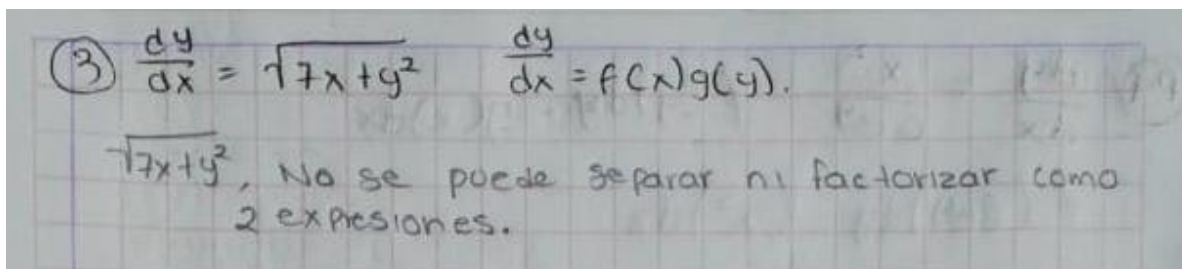 ③ dy/dx = √(7x+y²)   dy/dx = f(x)g(y).
√(7x+y²), No se puede separar ni factorizar como
2 expresiones.